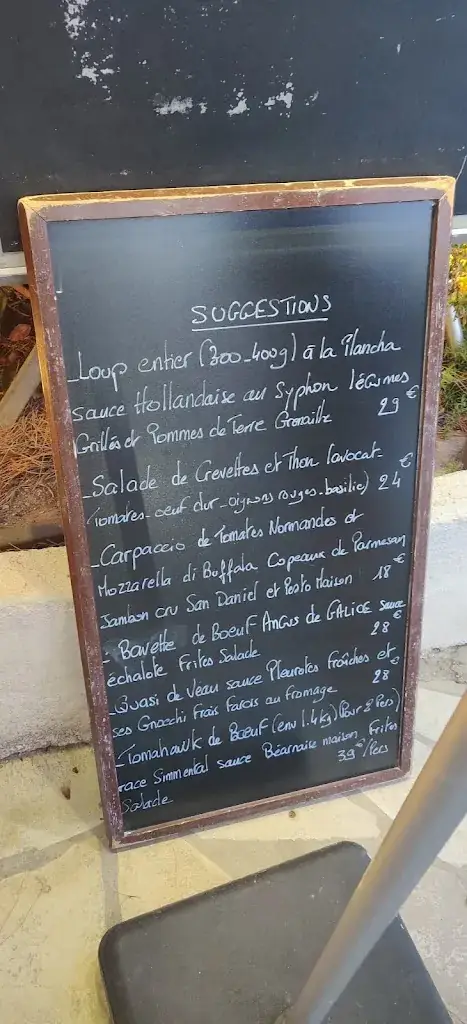 SUGGESTIONS
- Loup entier (300-400g) à la Plancha
sauce Hollandaise au Syphon légumes
Grillés et Pommes de Terre Grenaille 29 €
- Salade de Crevettes et Thon (avocat-
Tomates-oeuf dur-oignons rouges-basilic) 24 €
- Carpaccio de Tomates Normandes et
Mozzarella di Buffala Copeaux de Parmesan
Jambon cru San Daniel et Pesto Maison 18 €
- Bavette de Boeuf ANGUS de GALICE sauce
échalote Frites Salade 28 €
- Quasi de Veau sauce Pleurotes fraîches et
ses Gnocchi Frais Farcis au fromage 28 €
- Tomahawk de Boeuf (env 1.4kg) (Pour 2 Pers)
race Simmental sauce Béarnaise maison Frites
Salade 39 €/Pers